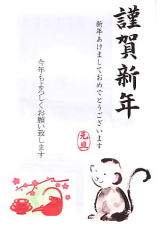 謹賀新年
新年あけましておめでとうございます
今年もよろしくお願い致します
元旦